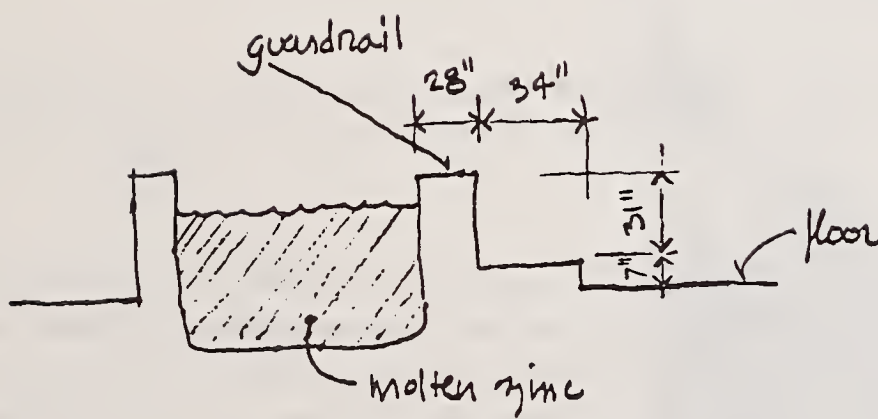 guardrail
28" 34"
31"
7"
floor
molten zinc